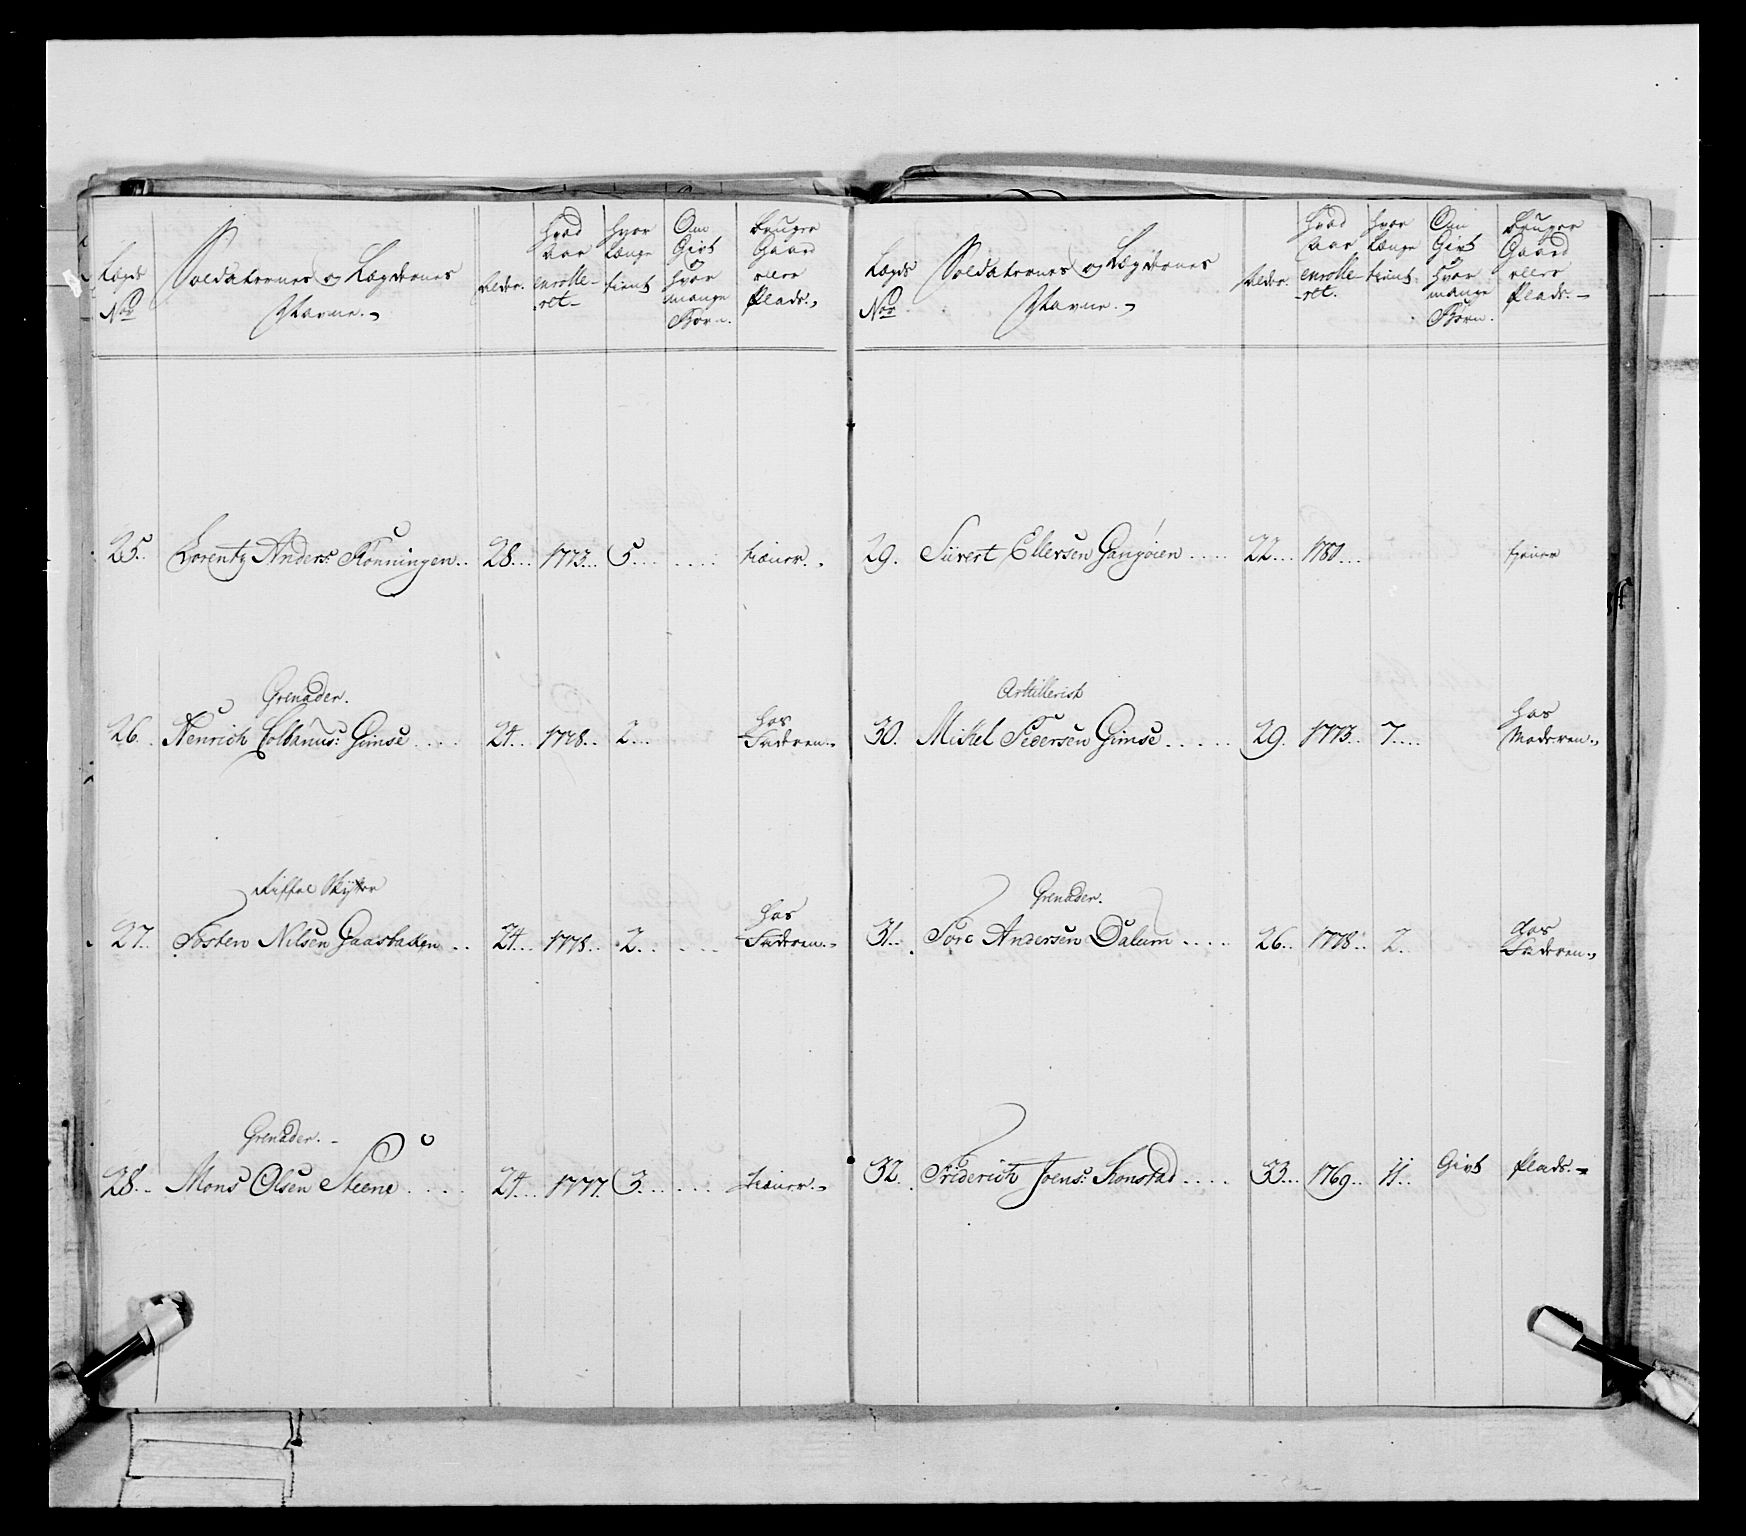 Lægds No.
Soldaternes og Lægdernes Navne.
Alder.
Hvad Aar enrolle-ret
Hvor længe tient
Om Givt og Hvor mange Børn.
Bruger Gaard eller Plads.
25. Lorentz Anders: Kønningen.. 28... 1773... 5.... .... tiener..
Grenader.
26. Henrich Colbanus: Gimse.... 24.. 1778.. 2... hos Faderen.
Riffel Skytter
27. Tosten Nilsen Gaasbakken.. 24... 1778.. 2... ... hos Faderen.
Grenader.
28.. Mons Olsen Steene.... 24... 1777. 3... .... tiener.
Lægds No.
Soldaternes og Lægdernes Navne.
Alder.
Hvad Aar enrolle-ret.
Hvor længe tient
Om Givt og Hvor mange Børn.
Bruger Gaard eller Plads.
29. Siivert Ellevsen Gangøien.... 22... 1780... tiener
Artillerist
30. Mikel Pedersen Gimse..... 29. 1773.. 7.... hos Moderen.
Grenader.
31.. Tore Andersen Dalum..... 26.. 1778.. 2. hos Faderen.
32. Friderich Joens: Slonstad.... 33... 1769.. 11.. Givt Plads.